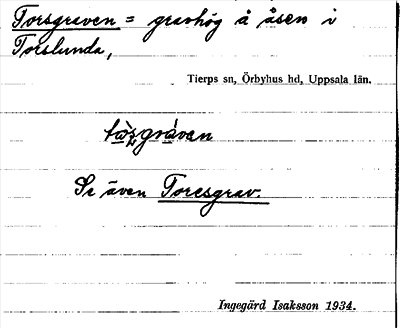 Torsgraven = gravhög å åsen i
Torslunda,
Tierps sn, Örbyhus hd, Uppsala län.
Se även Toresgrav.
Ingegärd Isaksson 1934.